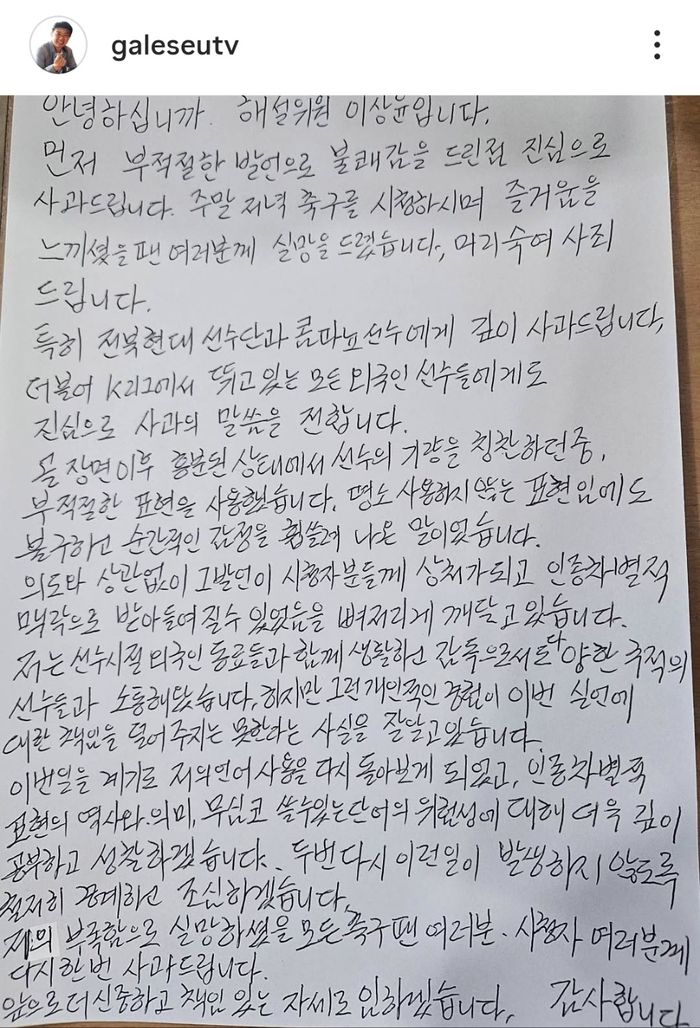 galeseutv
안녕하십니까. 해설위원 이상윤입니다.
먼저 부적절한 발언으로 불쾌감을 드린점 진심으로
사과드립니다. 주말 저녁 축구를 시청하시며 즐거움을
느끼셨을 팬 여러분께 실망을 드렸습니다. 머리숙여 사죄
드립니다.
특히 전북현대 선수단과 콤파뇨선수에게 깊이 사과드립니다,
더불어 K리그에서 뛰고 있는 모든 외국인 선수들에게도
진심으로 사과의 말씀을 전합니다.
골 장면이후 흥분된 상태에서 선수의 기량을 칭찬하던중,
부적절한 표현을 사용했습니다. 평소 사용하지 않는 표현임에도
불구하고 순간적인 감정을 휩쓸려 나온 말이었습니다.
의도와 상관없이 그발언이 시청자분들께 상처가되고 인종차별적
맥락으로 받아들여질수 있었음을 뼈저리게 깨닫고 있습니다.
저는 선수시절 외국인 동료들과 함께 생활하고 감독으로서도 다양한 국적의
선수들과 소통해왔습니다. 하지만 그런개인적인 경험이 이번 실언에
대한 책임을 덜어주지는 못한다는 사실을 잘알고있습니다.
이번일을 계기로 저의언어 사용을 다시 돌아보게 되었고, 인종차별적
표현의 역사와 의미, 무심코 쓸수있는단어의 위험성에 대해 더욱 깊이
공부하고 성찰하겠습니다. 두번다시 이런일이 발생하지 않도록
철저히 경계하고 조심하겠습니다.
저의 부족함으로 실망하셨을 모든축구팬 여러분. 시청자 여러분께
다시한번 사과드립니다.
앞으로더신중하고 책임 있는 자세로 임하겠습니다, 감사합니다